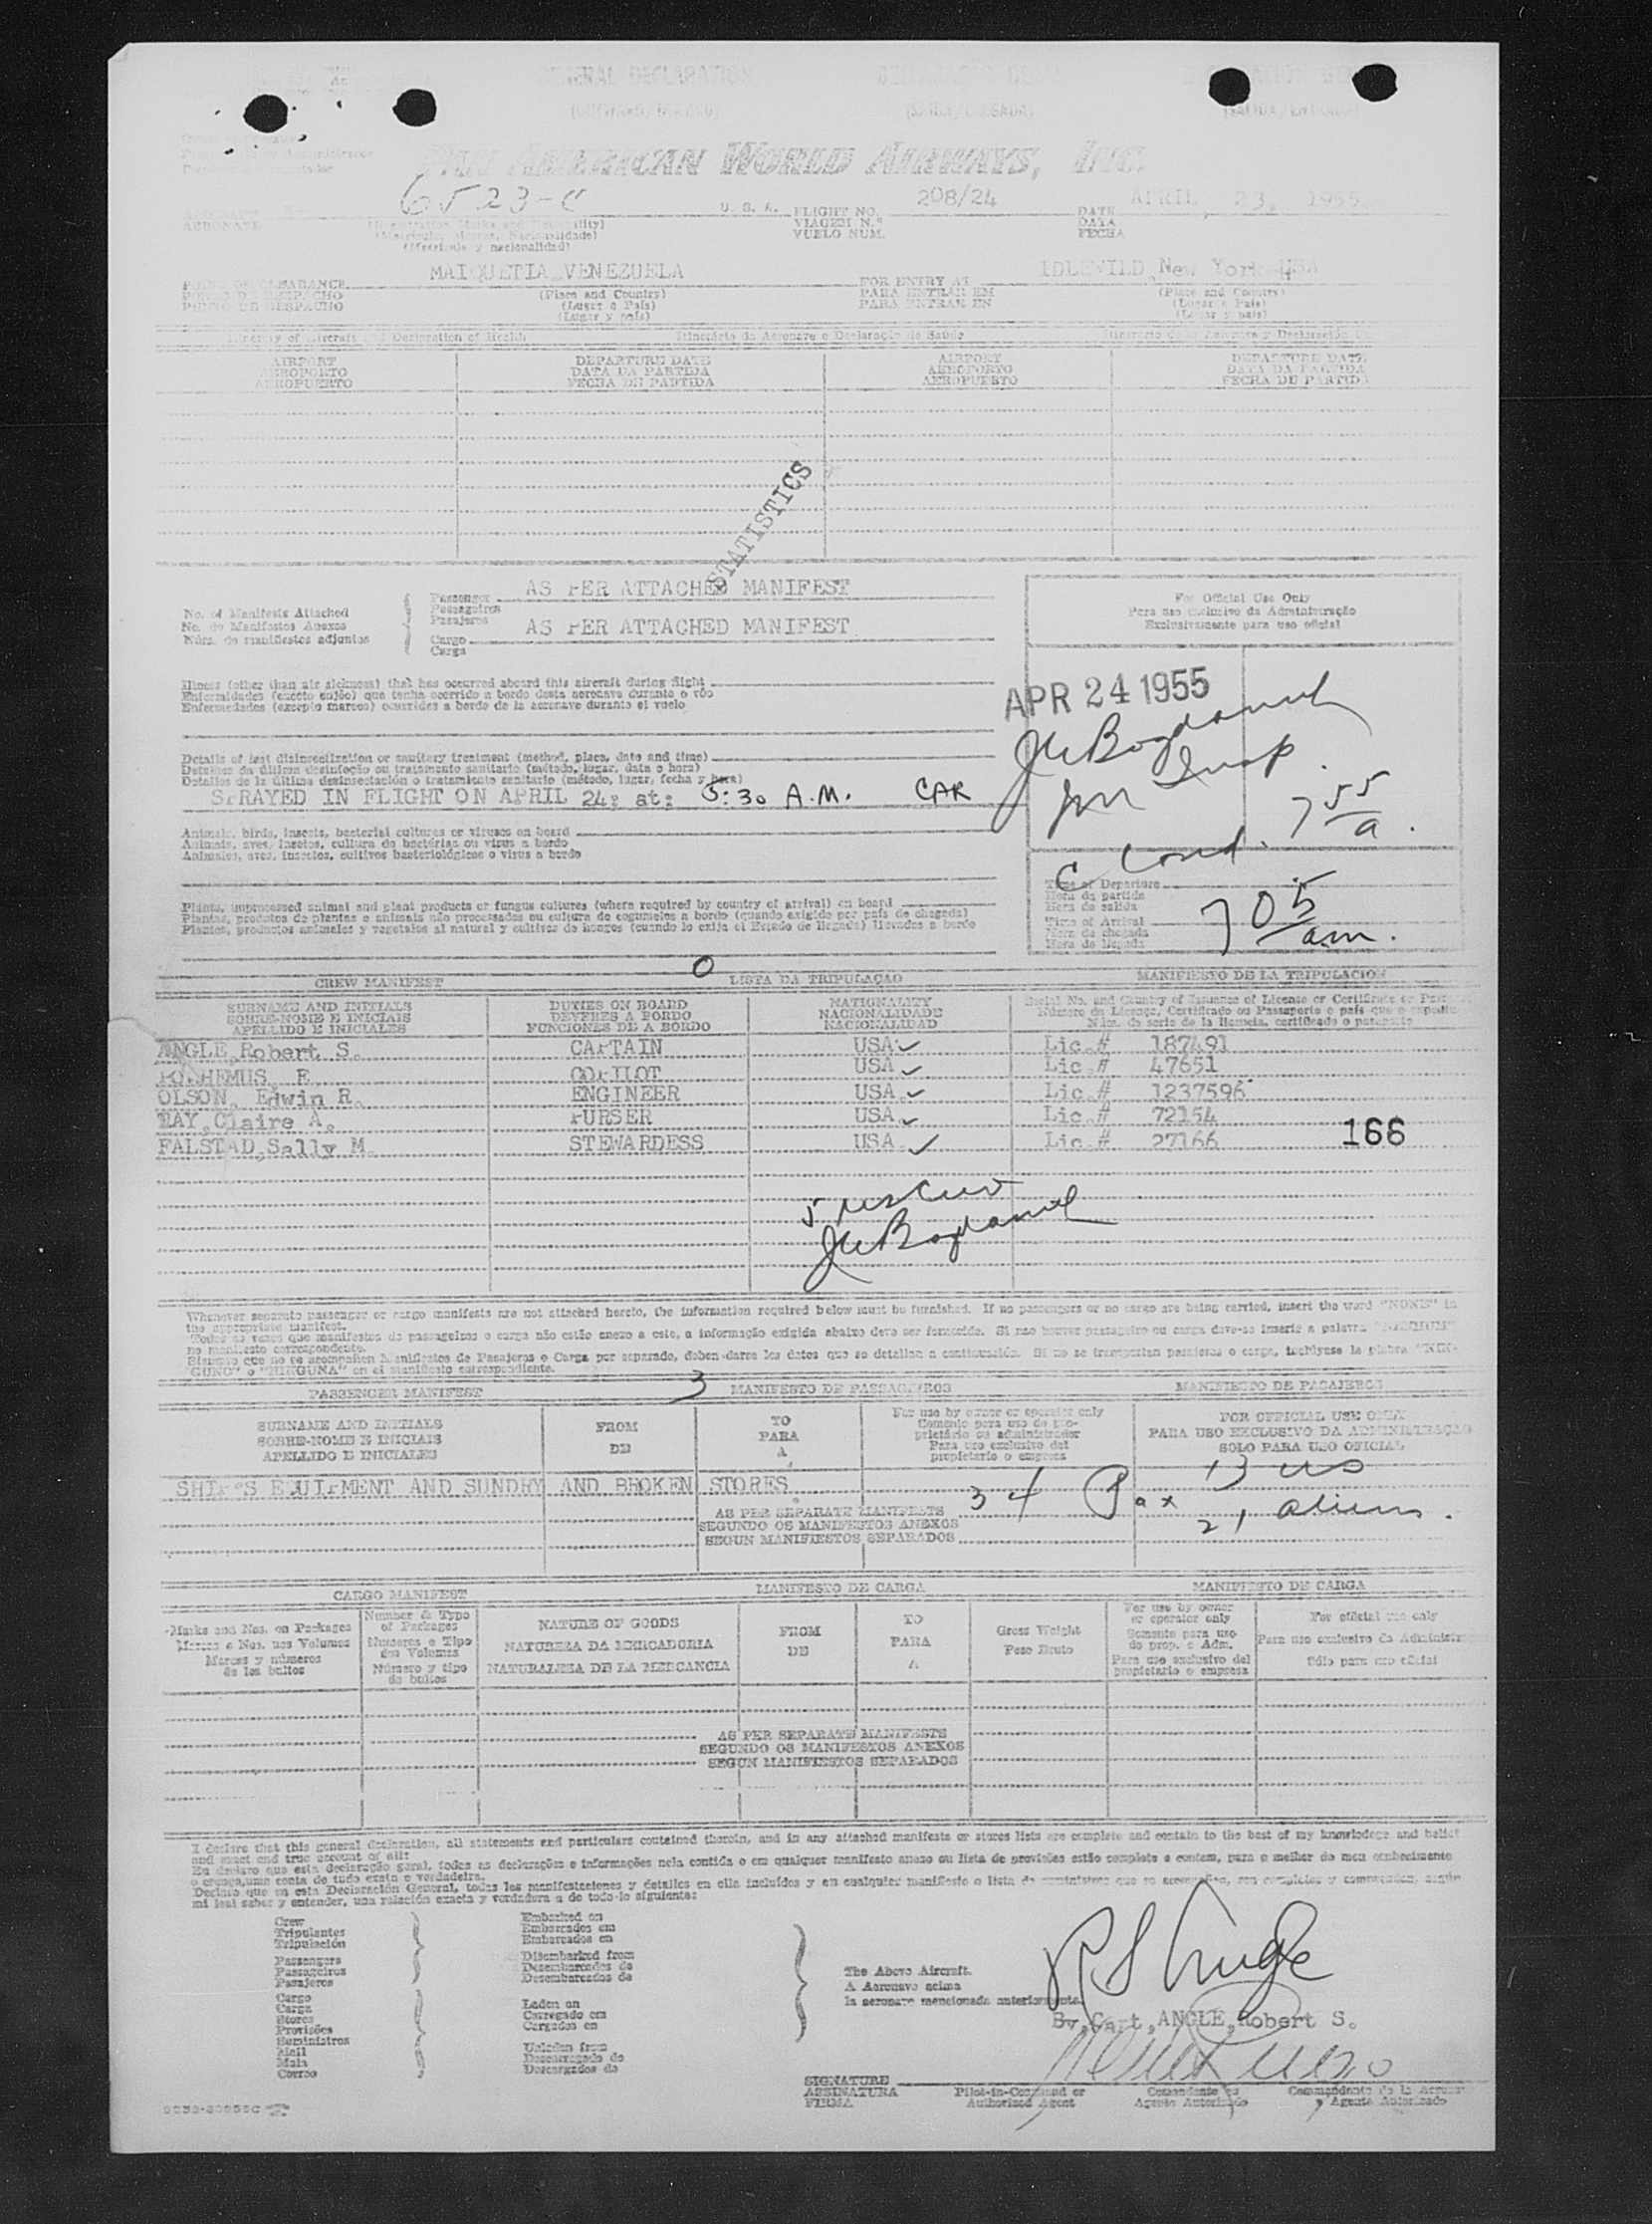 GENERAL DECLARATION
PAN AMERICAN WORLD AIRWAYS, INC.
6523-C U. S. A. FLIGHT NO. 208/24 DATE APRIL, 23, 1955
AERONAVE VIAGEM N.º DATA
VUELO NUM. FECHA
(Matrícula y nacionalidad)
MAIQUETIA, VENEZUELA FOR ENTRY AT IDLEWILD, New York USA
(Place and Country) PARA ENTRAR EM (Place and Country)
(Lugar o País) PARA ENTRAR EN
(Lugar y país)
Itinerary of Aircraft and Declaration of Health Itinerário da Aeronave e Declaração de Saúde
AIRPORT DEPARTURE DATE AIRPORT DEPARTURE DATE
AEROPORTO DATA DA PARTIDA AEROPORTO DATA DA PARTIDA
AEROPUERTO FECHA DE PARTIDA AEROPUERTO FECHA DE PARTIDA
STATISTICS
Passenger AS PER ATTACHED MANIFEST
Passageiros
Pasajeros
No. of Manifests Attached
No. de Manifestos Anexos
Núm. de manifiestos adjuntos
Cargo AS PER ATTACHED MANIFEST
Carga
For Official Use Only
Para uso exclusivo da Administração
Exclusivamente para uso oficial
Illness (other than air sickness) that has occurred aboard this aircraft during flight
Enfermidades (exceto enjôo) que tenha ocorrido a bordo desta aeronave durante o vôo
Enfermedades (excepto mareos) ocurridas a bordo de la aeronave durante el vuelo
APR 24 1955
Details of last disinsectization or sanitary treatment (method, place, date and time)
Detalhes da última desinfeção ou tratamento sanitario (método, lugar, data e hora)
Detalles de la última desinsectación o tratamiento sanitario (método, lugar, fecha y hora)
SPRAYED IN FLIGHT ON APRIL 24; at; 5:30 A.M. CAR
7 55 a.
Animals, birds, insects, bacterial cultures or viruses on board
Animais, aves, insetos, cultura de bactérias ou virus a bordo
Animales, aves, insectos, cultivos bacteriológicos o virus a bordo
Plants, unprocessed animal and plant products or fungus cultures (where required by country of arrival) on board
Plantas, produtos de plantas e animais não processados ou cultura de cogumelos a bordo (quando exigido por país de chegada)
Plantas, productos animales y vegetales al natural y cultivos de hongos (cuando lo exija el Estado de llegada) llevados a bordo
Time of Departure
Hora da partida
Hora de salida
Time of Arrival 7 05 am.
Hora da chegada
Hora de llegada
0
CREW MANIFEST LISTA DA TRIPULAÇAO MANIFIESTO DE LA TRIPULACION
SURNAME AND INITIALS DUTIES ON BOARD NATIONALITY Serial No. and Country of Issuance of License or Certificate or
SOBRE-NOME E INICIAIS DEVERES A BORDO NACIONALIDADE Número da Licença, Certificado ou Passaporte e país que
APELLIDO E INICIALES FUNCIONES DE A BORDO NACIONALIDAD Núm. de serie de la licencia, certificado o pasaporte
ANGLE, Robert S. CAPTAIN USA Lic.# 187491
POLHEMUS, E COPILOT USA Lic.# 47651
OLSON, Edwin R. ENGINEER USA Lic.# 1237596
RAY, Claire A. PURSER USA Lic.# 72154
FALSTAD, Sally M STEWARDESS USA Lic.# 27166 166
Whenever separate passenger or cargo manifests are not attached hereto, the information required below must be furnished. If no passengers or no cargo are being carried, insert the word "NONE" in
the appropriate manifest.
no manifesto correspondente.
"GUNO" o "NINGUNA" en el manifiesto correspondiente.
3
PASSENGER MANIFEST MANIFESTO DE PASSAGEIROS MANIFIESTO DE PASAJEROS
SURNAME AND INITIALS FROM TO For use by owner or operator only FOR OFFICIAL USE ONLY
SOBRE-NOME E INICIAIS DE PARA PARA USO EXCLUSIVO DA ADMINISTRAÇAO
APELLIDO E INICIALES A SOLO PARA USO OFICIAL
SHIP'S EQUIPMENT AND SUNDRY AND BROKEN STORES. 34 Pax 13 US
AS PER SEPARATE MANIFESTS 21 aliens.
SEGUNDO OS MANIFESTOS ANEXOS
SEGUN MANIFIESTOS SEPARADOS
CARGO MANIFEST MANIFESTO DE CARGA MANIFIESTO DE CARGA
Marks and Nos. on Packages Number & Type of Packages NATURE OF GOODS FROM TO Gross Weight For use by owner or operator only For official use only
Marcas e Nos. nos Volumes Números e Tipo dos Volumes NATUREZA DA MERCADORIA DE PARA Peso Bruto Somente para uso do prop. e Adm.
Marcas y números de los bultos Número y tipo de bultos NATURALEZA DE LA MERCANCIA A Para uso exclusivo del propietario o empresa Sólo para uso oficial
AS PER SEPARATE MANIFESTS
SEGUNDO OS MANIFESTOS ANEXOS
SEGUN MANIFIESTOS SEPARADOS
I declare that this general declaration, all statements and particulars contained therein, and in any attached manifests or stores lists are complete and contain to the best of my knowledge and belief
and exact and true account of all:
Eu declaro que esta declaração geral, todas as declarações e informações nela contida e em qualquer manifesto anexo ou lista de provisões estão completo e contem, para o melhor do meu conhecimento
e crença, uma conta de tudo exata e verdadeira.
mi leal saber y entender, una relación exacta y verdadera a de todo lo siguiente:
Crew Embarked on
Tripulantes Embarcados em
Tripulación Embarcados en
Passengers Disembarked from
Passageiros Desembarcados de
Pasajeros Desembarcados de
Cargo
Carga Laden on
Stores Carregado em
Provisões Cargados en
Suministros
Mail Unladen from
Mala Descarregado de
Correo Descargados de
The Above Aircraft.
A Aeronave acima
la aeronave mencionada anteriormente.
By, Capt, ANGLE, Robert S.
SIGNATURE
ASSINATURA Pilot-in-Command or Comandante ou Commandante de la
FIRMA Authorized Agent Agente Autorizado o Agente Autorizado